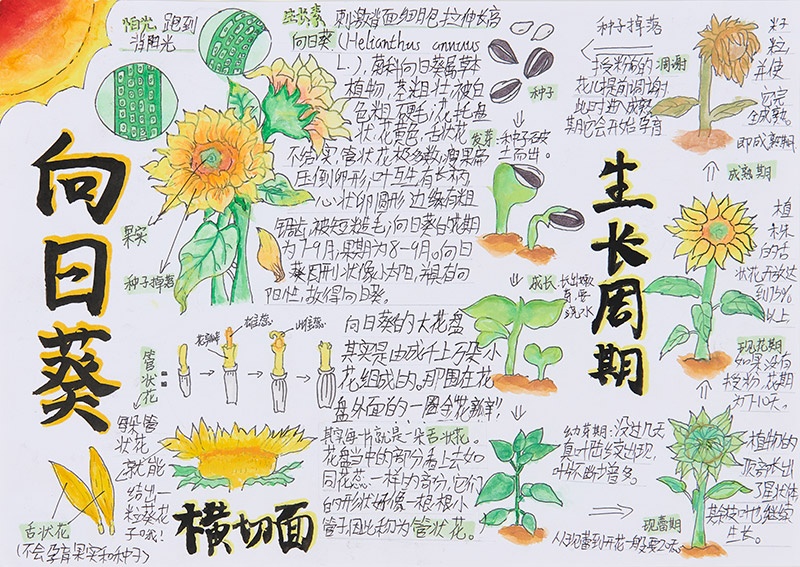 向日葵
阳光
跑到
背阳光
生长素
刺激背面细胞拉伸长高
向日葵(Helianthus annuus
L.),菊科向日葵属草本
植物,茎粗壮,被白
色粗硬毛,花托盘
状,花黄色,舌状花
不结实,管状花极多数,瘦果
压倒卵形,叶互生有长柄,
心状卵圆形,边缘有粗
锯齿,被短糙毛,向日葵的花期
为7-9月,果期为8-9月。向日
葵因形状像太阳,并具有向
阳性,故得向日葵。
果实
种子掉落
管状花
雄蕊
雌蕊
向日葵的大花盘
其实是由成千上万朵小
花组成的。那围在花
盘外面的一圈金“花瓣”
其实每一片就是一朵舌状花。
花盘当中的部分看上去如
同花蕊一样的部分,它们
的形状好像一根根小
管子因此称为管状花。
每朵管
状花
就能
结出一
粒葵花
子哦!
舌状花
(不会孕育果实和种子)
横切面
生长周期
种子
发芽:种子破
土而出。
成长:
浇水
幼芽期:没过几天
真叶陆续出现,
叶片不断增多。
现蕾期
从现蕾到开花一般要20天。
植物的
顶部冰出
了星状体
其枝叶也继续
生长。
现花期
如果没有
授粉,花期
为7-10天。
植
株
的舌
状花开放达
到75%
以上
成熟期
种子掉落
授粉的凋谢
花儿提前凋谢,
此时进入成熟
期它会开始孕育
籽
粒,
并使
它完
全成熟。
即成熟期